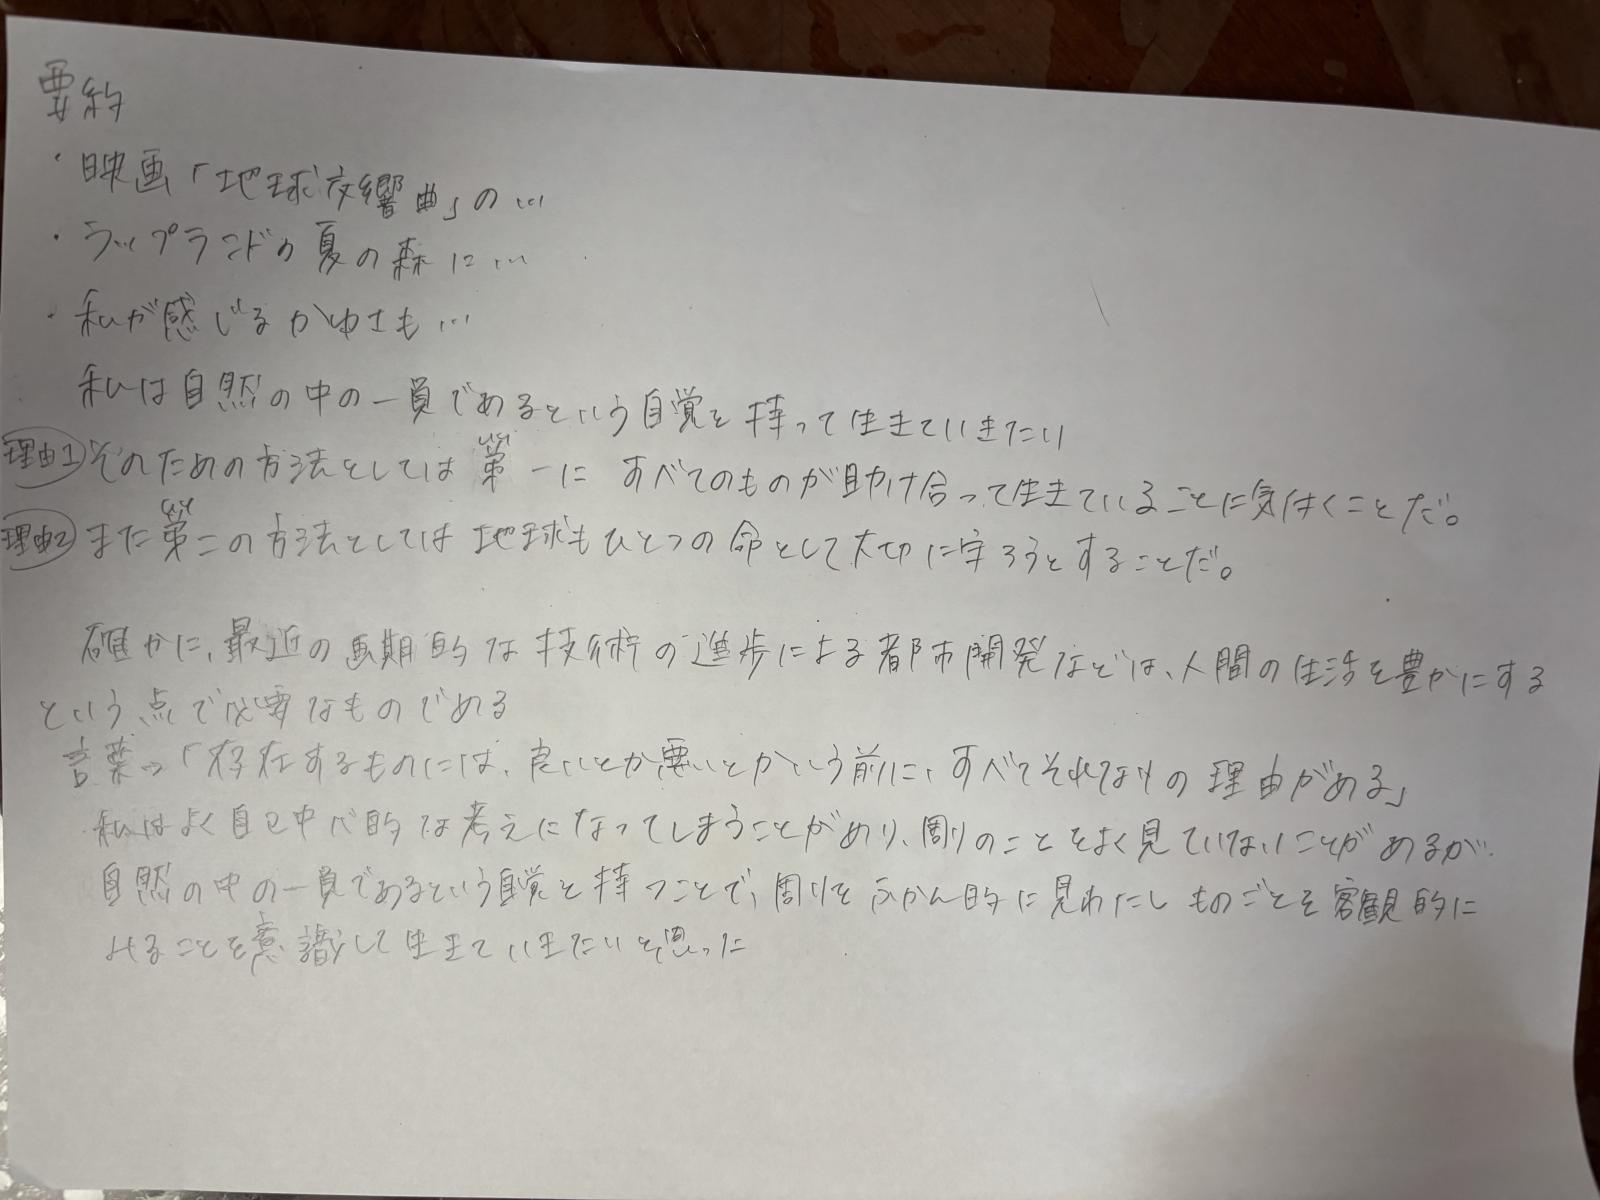 要約
・映画「地球交響曲」の…
・ラップランドの夏の森に…
・私が感じるかゆさも…
私は自然の中の一員であるという自覚を持って生きていきたい
理由1 そのための方法としては第一にすべてのものが助け合って生きていることに気付くことだ。
理由2 また第二の方法としては地球もひとつの命として大切に守ろうとすることだ。
確かに、最近の画期的な技術の進歩による都市開発などは、人間の生活を豊かにする
という点で必要なものである
言葉→「存在するものには、良いとか悪いとかいう前に、すべてそれなりの理由がある」
私はよく自己中心的な考えになってしまうことがあり、周りのことをよく見ていないことがあるが、
自然の中の一員であるという自覚を持つことで、周りをふかん的に見わたしものごとを客観的に
みることを意識して生きていきたいと思った